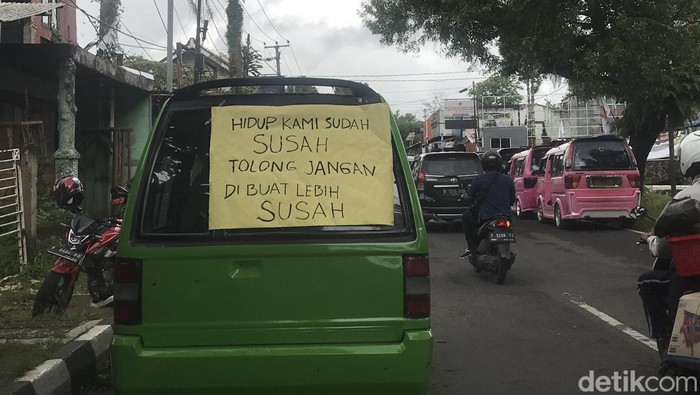 HIDUP KAMI SUDAH
SUSAH
TOLONG JANGAN
DI BUAT LEBIH
SUSAH
detikcom